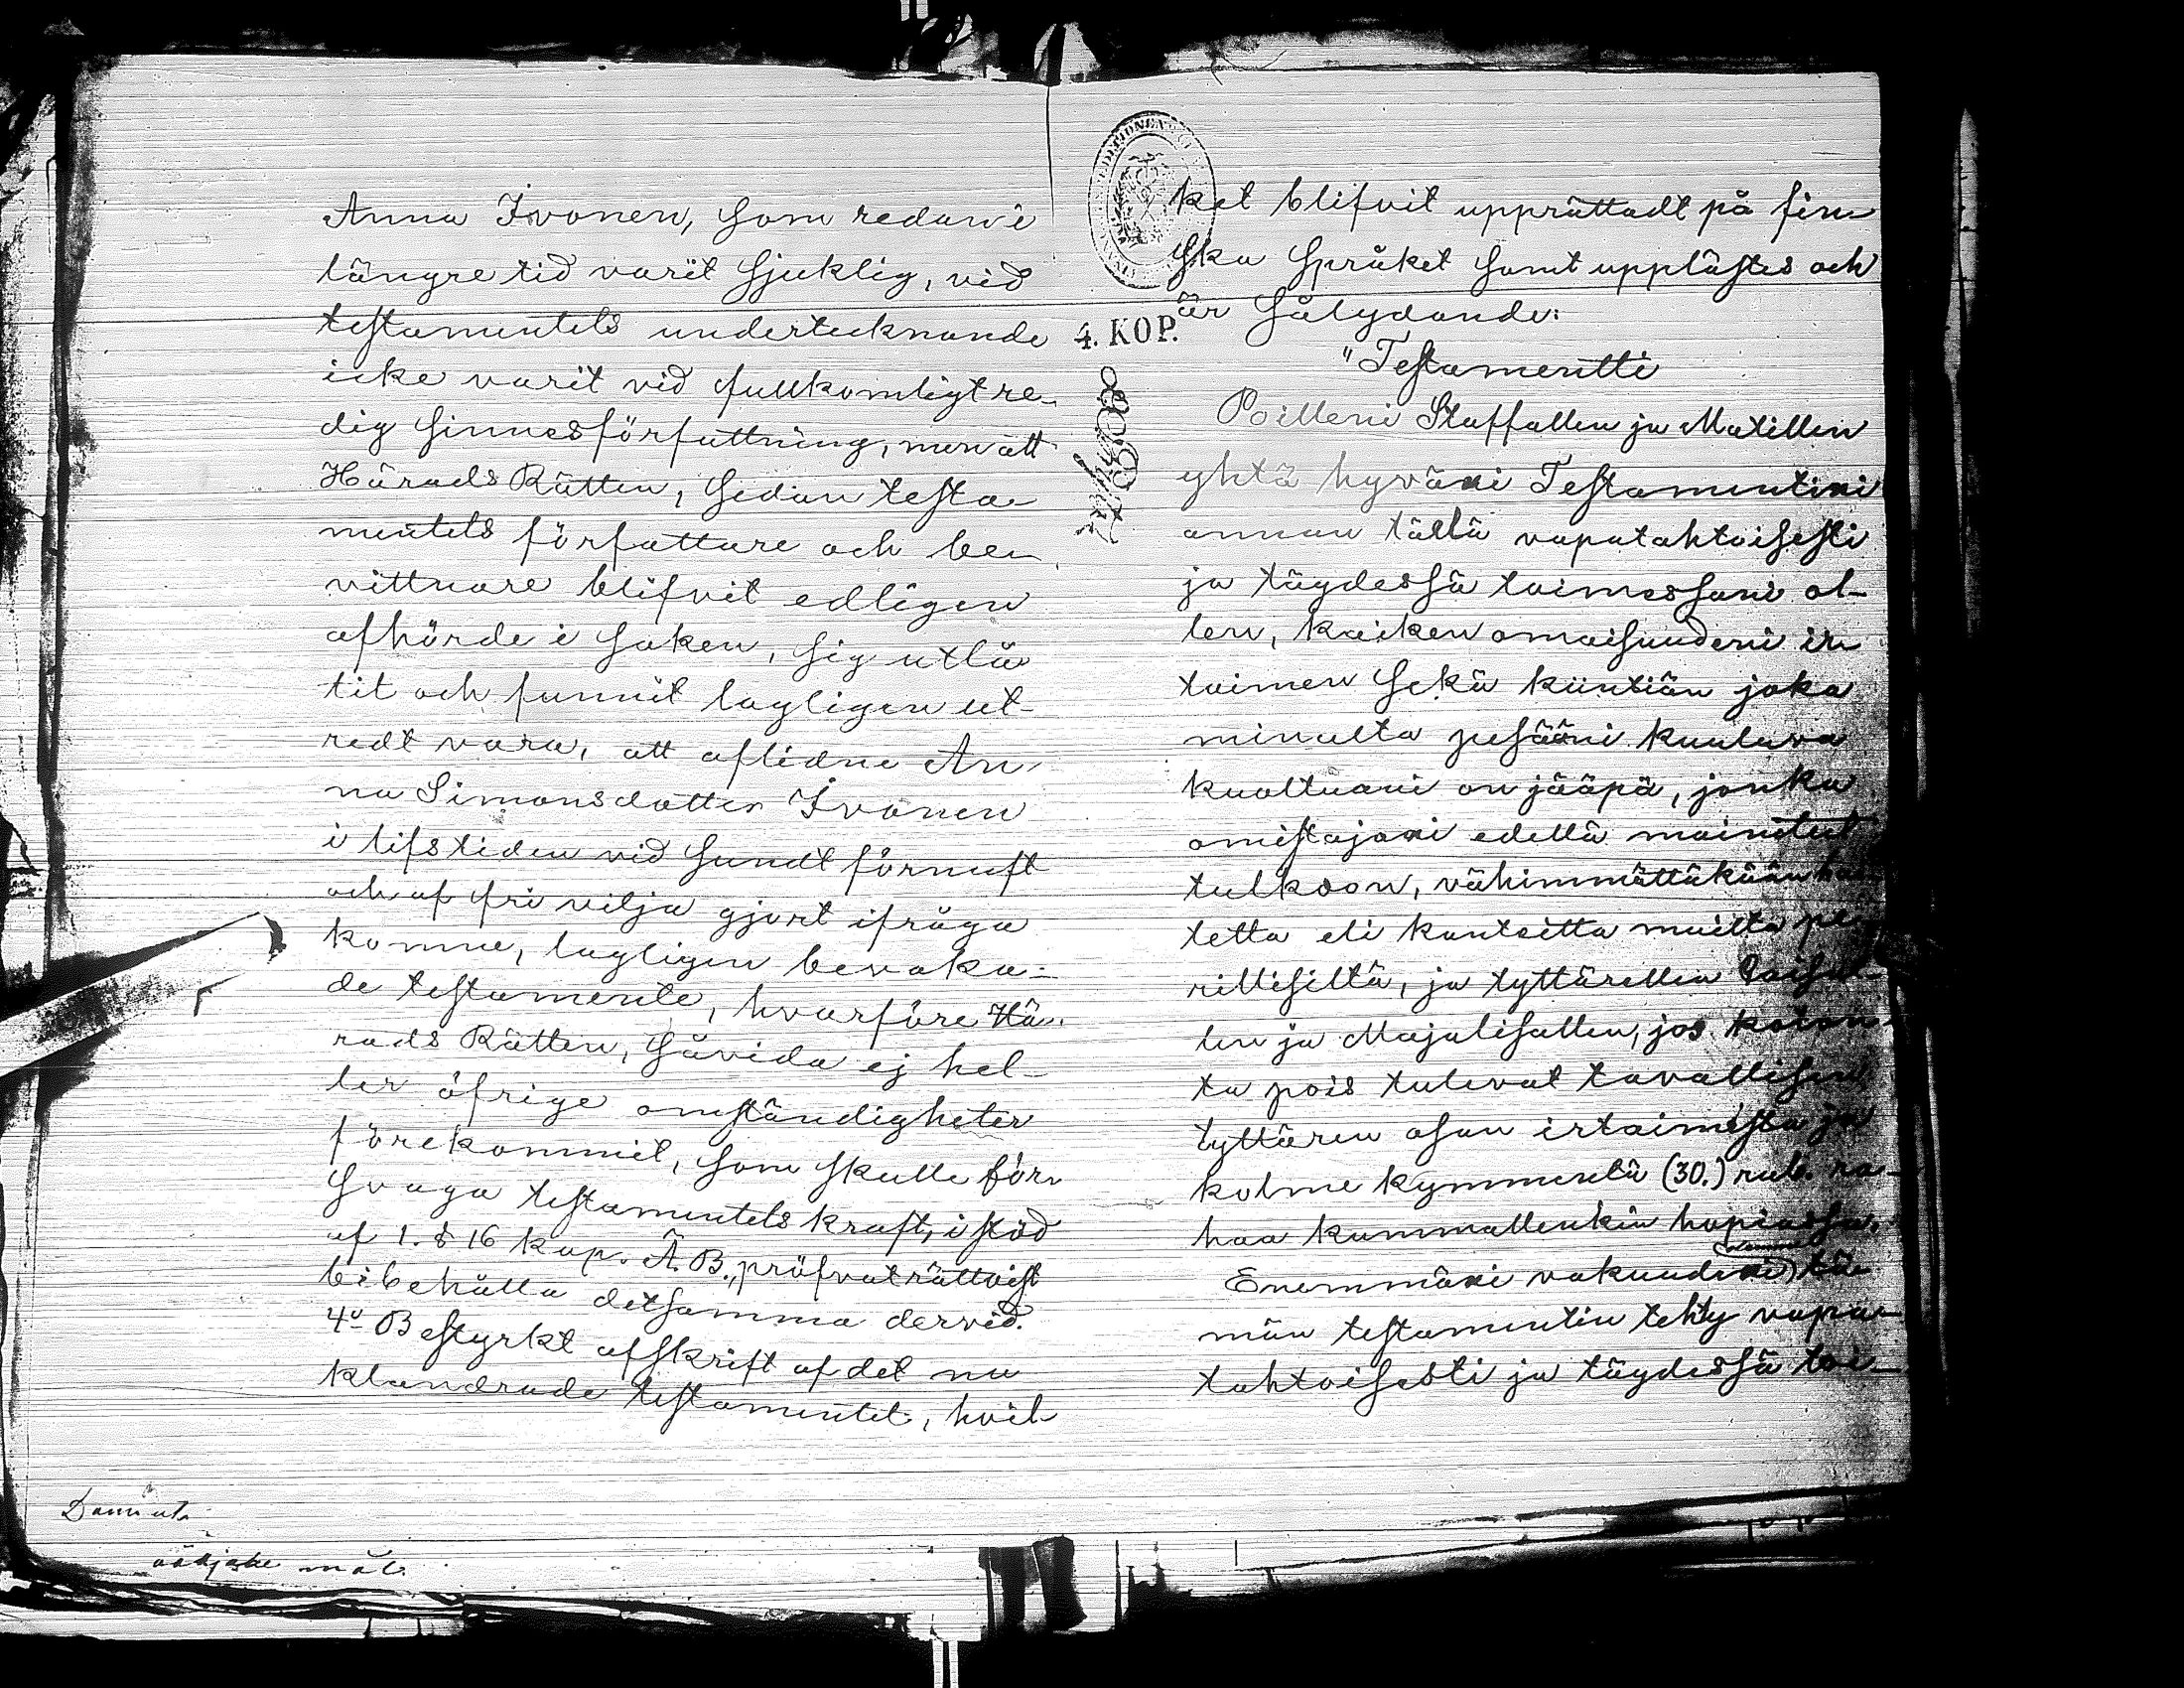 Anna Ivonen, som redan i
längre tid varit sjuklig, vid
testamentets undertecknande
icke varit vid fullkomligt re-
dig sinnesförfattning, men att
Härads Rätten, sedan testa-
mentets författare och be-
vittnare blifvit edligen
afhörde i saken, sig utlå-
tit och funnit lagligen ut-
redt vara, att aflidne An-
na Simonsdotter Ivonen
i lifstiden vid sundt förnuft
och af fri vilja gjort ifråga
komne, lagligen bevaka-
de testamente, hvarföre Hä-
rads Rätten, såvida ej hel-
ler öfrige omständigheter
förekommit, som skulle för-
svaga testamentets kraft, i stöd
af 1. § 16 kap. Ä. B., pröfvat rättvist
bibehålla detsamma dervid.
4o Bestyrkt afskrift af det nu
klandrade testamentet, hvil-
ket blifvit upprättadt på fin-
ska språket samt upplästes och
är sålydande:
4. KOP.
"Testamentti
Poilleni Staffallen ja Matillen
yhtä hyväxi Testamentixi
annan tällä vapatahtoisesti
ja täydessä toimessani ol-
len, kaiken omaisuudeni ir-
toimen sekä kiintiän joka
minulta pesääni kuuluva
kuoltuani on jääpä, jonka
omistajaxi edellä mainitut
tulkoon, vähimmättäkään
tetta eli kantsitta muilta pe-
rillisiltä, ja tyttärellen
len ja Majalisallen, jos koton-
ta pois tulevat tavallisen
tyttären osan irtaimista ja
kolme kymmentä (30.) rub. ra-
haa kummallenkin hopiassa.
Enemmäxi vakuudexi tä-
män testamentin tehty vapa-
tahtoisesti ja täydessä toi-
mål.